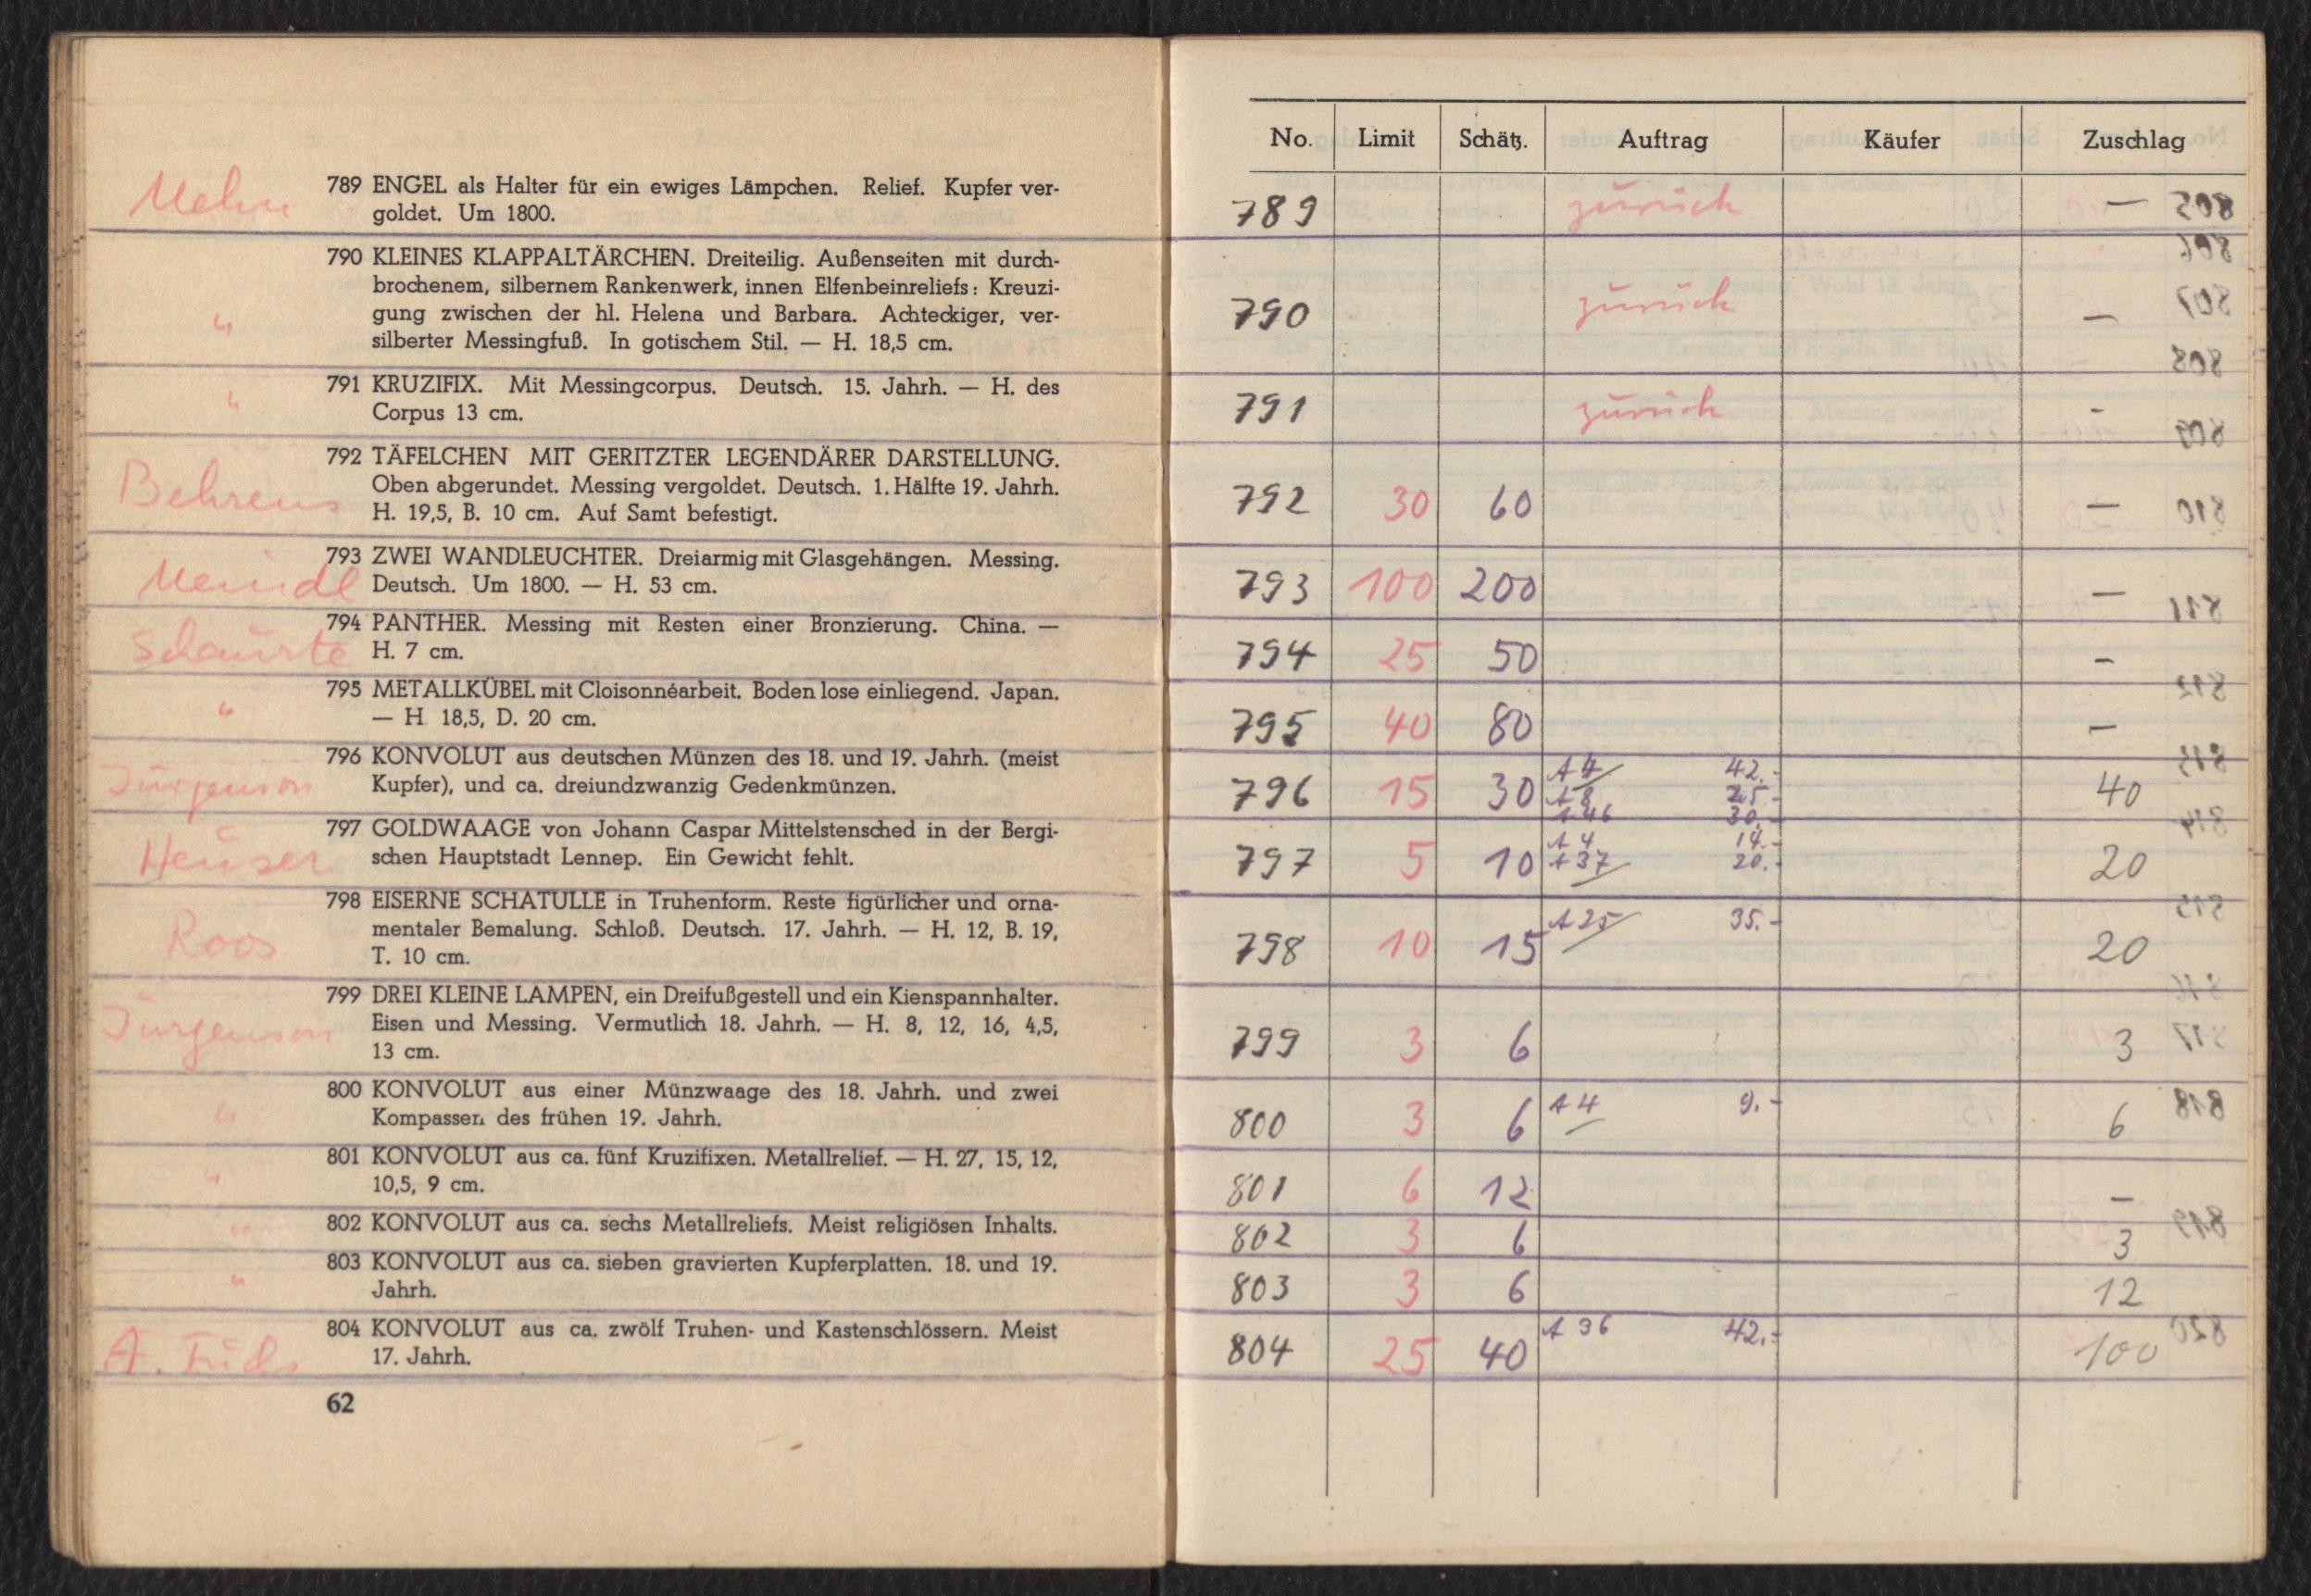 Mehn
789 ENGEL als Halter für ein ewiges Lämpchen. Relief. Kupfer ver-
goldet. Um 1800.
790 KLEINES KLAPPALTÄRCHEN. Dreiteilig. Außenseiten mit durch-
brochenem, silbernem Rankenwerk, innen Elfenbeinreliefs: Kreuzi-
gung zwischen der hl. Helena und Barbara. Achteckiger, ver-
" silberter Messingfuß. In gotischem Stil. — H. 18,5 cm.
" 791 KRUZIFIX. Mit Messingcorpus. Deutsch. 15. Jahrh. — H. des
Corpus 13 cm.
792 TÄFELCHEN MIT GERITZTER LEGENDÄRER DARSTELLUNG.
Behrens Oben abgerundet. Messing vergoldet. Deutsch. 1. Hälfte 19. Jahrh.
H. 19,5, B. 10 cm. Auf Samt befestigt.
793 ZWEI WANDLEUCHTER. Dreiarmig mit Glasgehängen. Messing.
Meindl Deutsch. Um 1800. — H. 53 cm.
794 PANTHER. Messing mit Resten einer Bronzierung. China. —
Schaurte H. 7 cm.
795 METALLKÜBEL mit Cloisonnéarbeit. Boden lose einliegend. Japan.
" — H. 18,5, D. 20 cm.
796 KONVOLUT aus deutschen Münzen des 18. und 19. Jahrh. (meist
Jürgenson Kupfer), und ca. dreiundzwanzig Gedenkmünzen.
797 GOLDWAAGE von Johann Caspar Mittelstensched in der Bergi-
Heuser schen Hauptstadt Lennep. Ein Gewicht fehlt.
798 EISERNE SCHATULLE in Truhenform. Reste figürlicher und orna-
Roos mentaler Bemalung. Schloß. Deutsch. 17. Jahrh. — H. 12, B. 19,
T. 10 cm.
799 DREI KLEINE LAMPEN, ein Dreifußgestell und ein Kienspannhalter.
Jürgenson Eisen und Messing. Vermutlich 18. Jahrh. — H. 8, 12, 16, 4,5,
13 cm.
800 KONVOLUT aus einer Münzwaage des 18. Jahrh. und zwei
" Kompassen des frühen 19. Jahrh.
801 KONVOLUT aus ca. fünf Kruzifixen. Metallrelief. — H. 27, 15, 12,
" 10,5, 9 cm.
" 802 KONVOLUT aus ca. sechs Metallreliefs. Meist religiösen Inhalts.
803 KONVOLUT aus ca. sieben gravierten Kupferplatten. 18. und 19.
" Jahrh.
804 KONVOLUT aus ca. zwölf Truhen- und Kastenschlössern. Meist
A. Fuchs 17. Jahrh.
62
No. Limit Schätz. Auftrag Käufer Zuschlag
789 zurück —
790 zurück —
791 zurück -
792 30 60 —
793 100 200 —
794 25 50 -
795 40 80 —
796 15 30 A 4 42.- 40
A 8 25.-
A 46 30.-
797 5 10 A 4 14.- 20
A 37 20.-
798 10 15 A 25 35.- 20
799 3 6 3
800 3 6 A 4 9.- 6
801 6 12 —
802 3 6 3
803 3 6 12
804 25 40 A 36 42.- 100